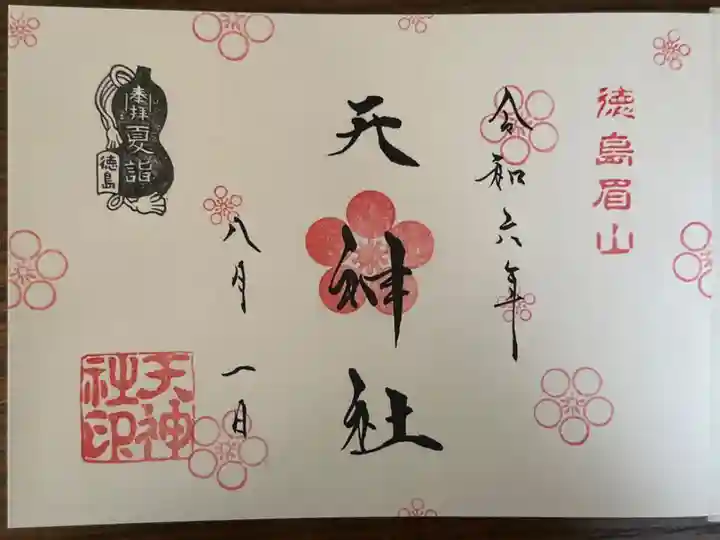 徳島眉山
令和六年
天神社
八月一日
奉拝
夏詣
徳島
天神
社印